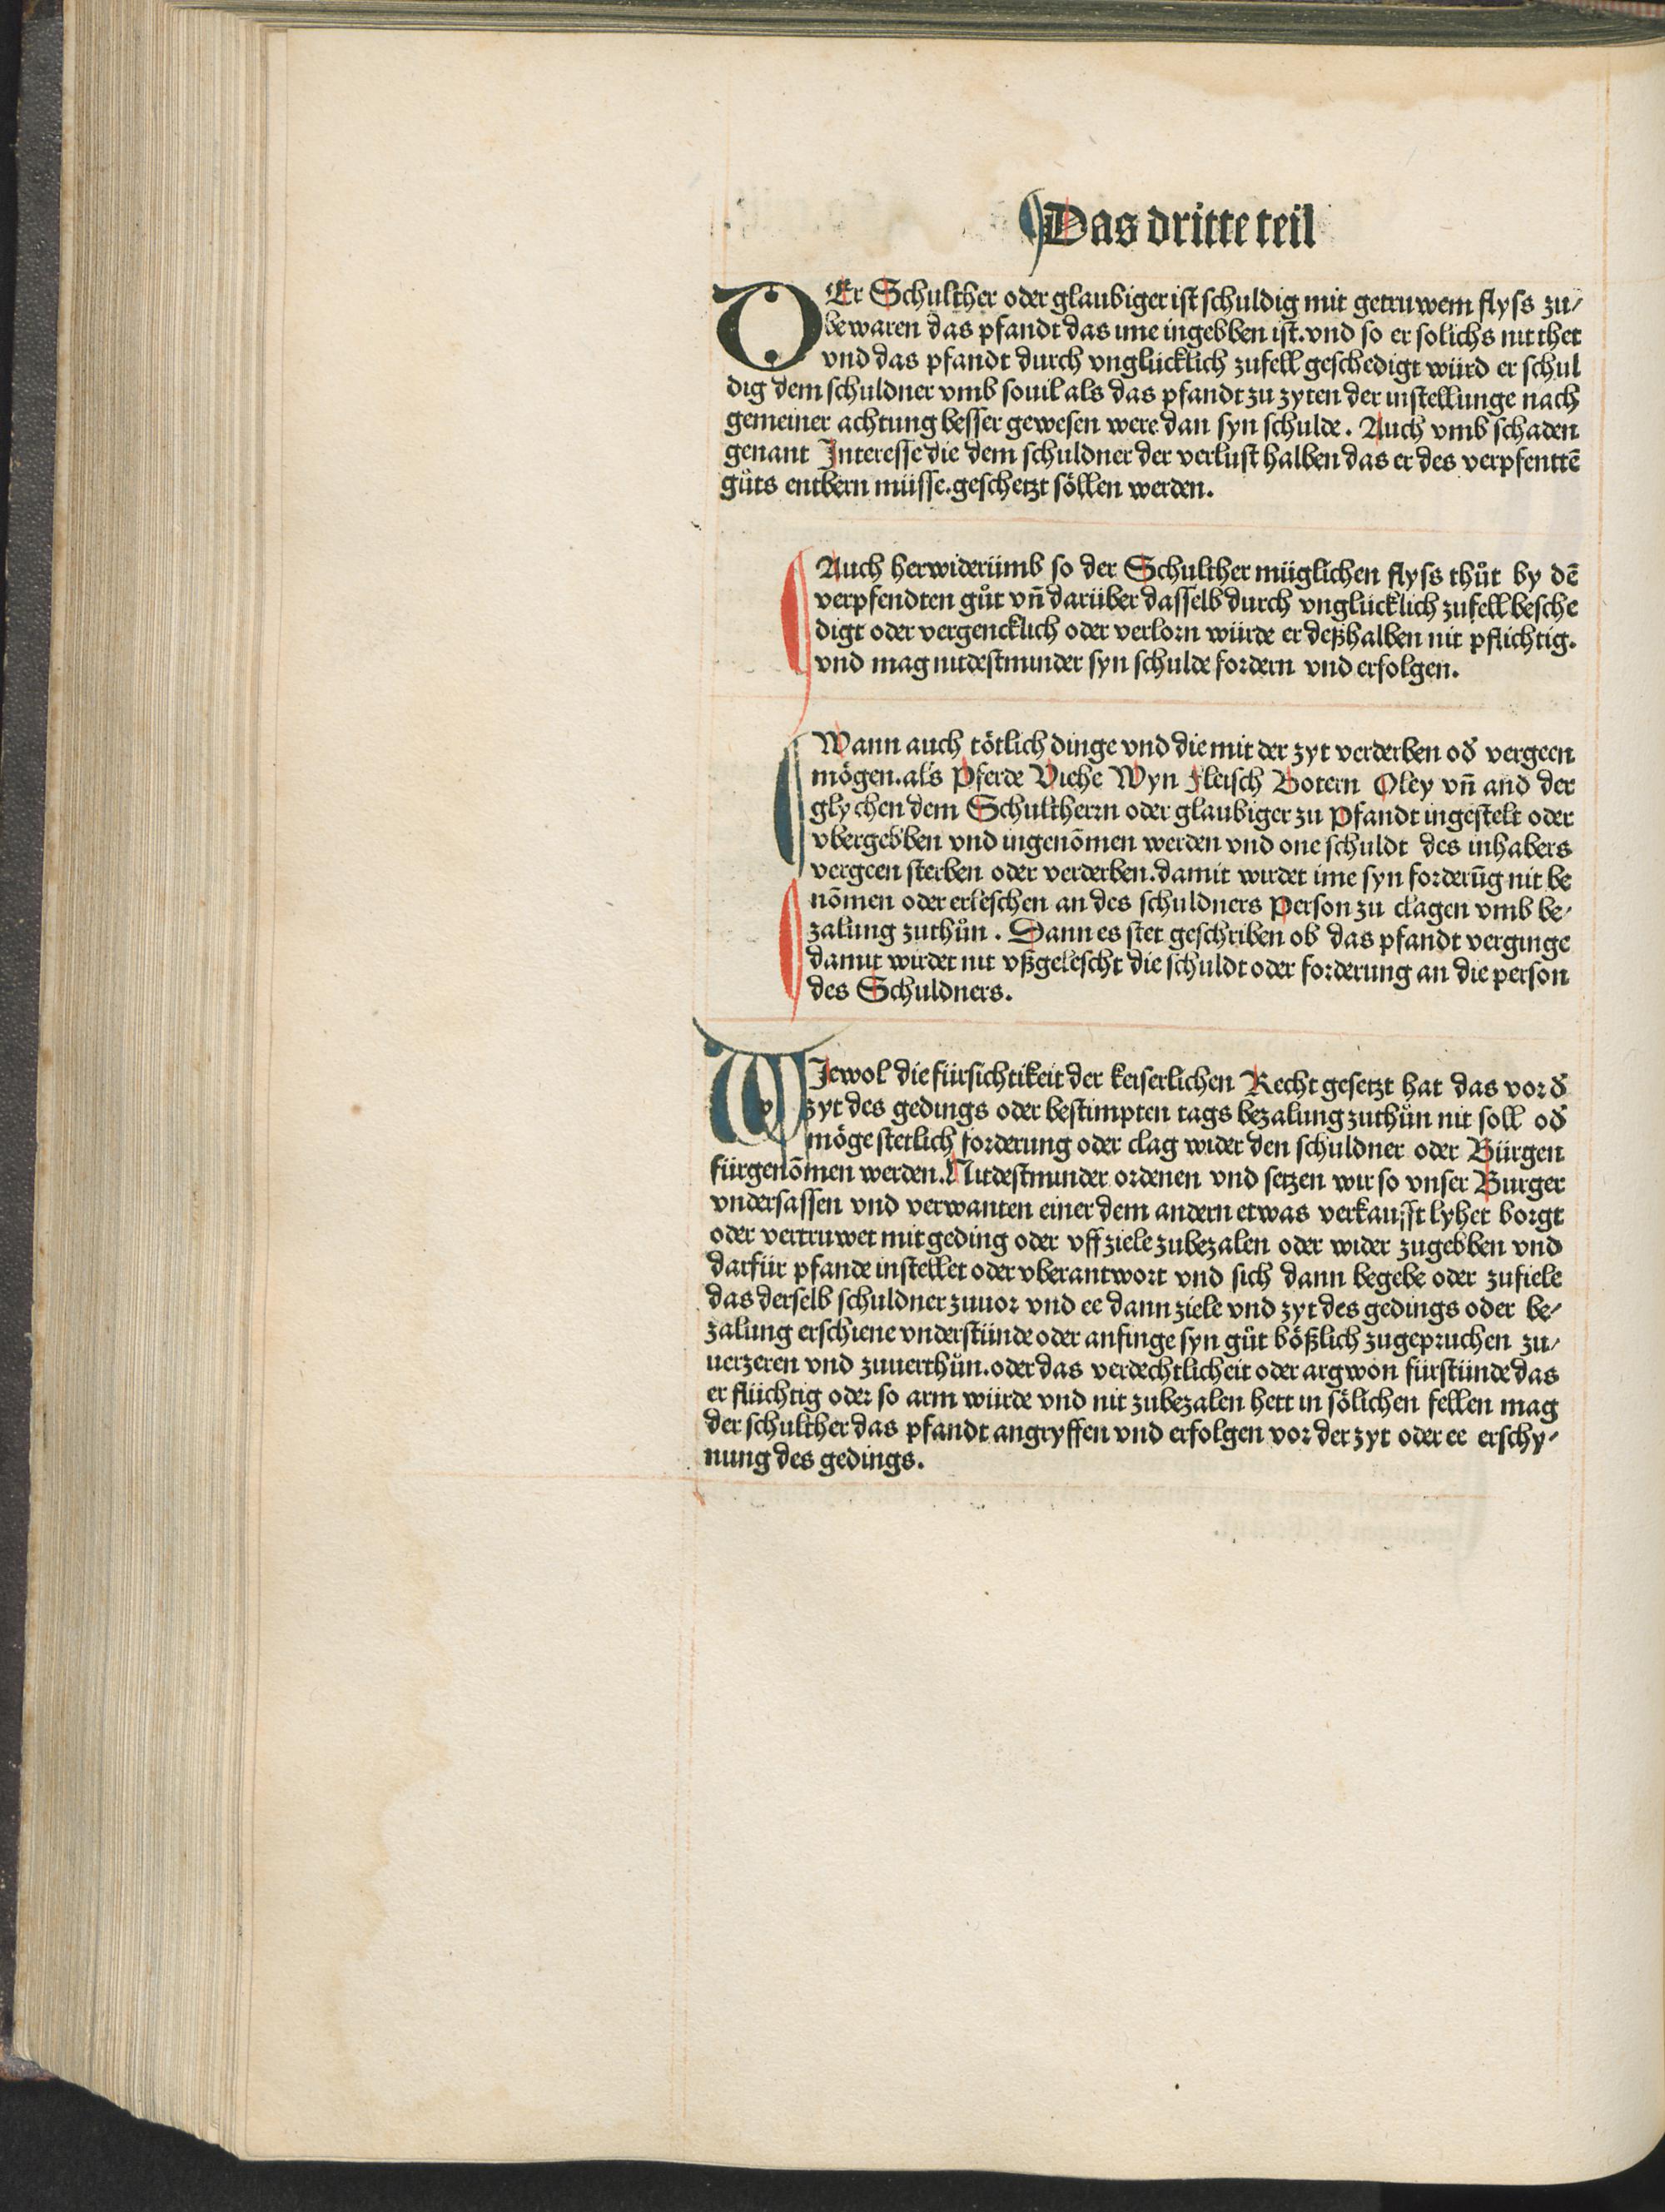 Das dritte teil
DEr Schulther oder glaubiger ist schuldig mit getruwem flyss zu/
bewaren das pfandt das ime ingebben ist. vnd so er solichs nit thet
vnd das pfandt durch vnglücklich zufell geschedigt würd er schul
dig dem schuldner vmb souil als das pfandt zu zyten der instellunge nach
gemeiner achtung besser gewesen were dan syn schulde. Auch vmb schaden
genant Interesse die dem schuldner der verlust halben das er des verpfenttē
gůts entbern müsse. geschetzt söllen werden.
Auch herwiderümb so der Schulther müglichen flyss thůt by dē
verpfendten gůt vn̄ darüber dasselb durch vnglücklich zufell besche
digt oder vergencklich oder verlorn würde er deßhalben nit pflichtig.
vnd mag nitdestminder syn schulde fordern vnd erfolgen.
Wann auch tötlich dinge vnd die mit der zyt verderben od̓ vergeen
mögen. als Pferde Viehe Wyn Fleisch Botern Oley vn̄ and der
glychen dem Schultherrn oder glaubiger zu Pfandt ingestelt oder
vbergebben vnd ingenōmen werden vnd one schuldt des inhabers
vergeen sterben oder verderben. damit wirdet ime syn forderūg nit be
nōmen oder erleschen an des schuldners Person zu clagen vmb be/
zalung zuthůn. Dann es stet geschriben ob das pfandt verginge
damit wirdet nit vßgelescht die schuldt oder forderung an die person
des Schuldners.
WIewol die fürsichtikeit der keiserlichen Recht gesetzt hat das vor d̓
zyt des gedings oder bestimpten tags bezalung zuthůn nit soll od̓
möge stetlich forderung oder clag wider den schuldner oder Bürgen
fürgenōmen werden. Nitdestminder ordenen vnd setzen wir so vnser Burger
vndersassen vnd verwanten einer dem andern etwas verkaufft lyhet borgt
oder vertruwet mit geding oder vff ziele zubezalen oder wider zugebben vnd
darfür pfande instellet oder vberantwort vnd sich dann begebe oder zufiele
das derselb schuldner zuuor vnd ee dann ziele vnd zyt des gedings oder be/
zalung erschiene vnderstünde oder anfinge syn gůt bößlich zugepruchen zu/
uerzeren vnd zuuerthůn. oder das verdechtlicheit oder argwon fürstünde das
er flüchtig oder so arm würde vnd nit zubezalen hett in sölichen fellen mag
der schulther das pfandt angryffen vnd erfolgen vor der zyt oder ee erschy/
nung des gedings.